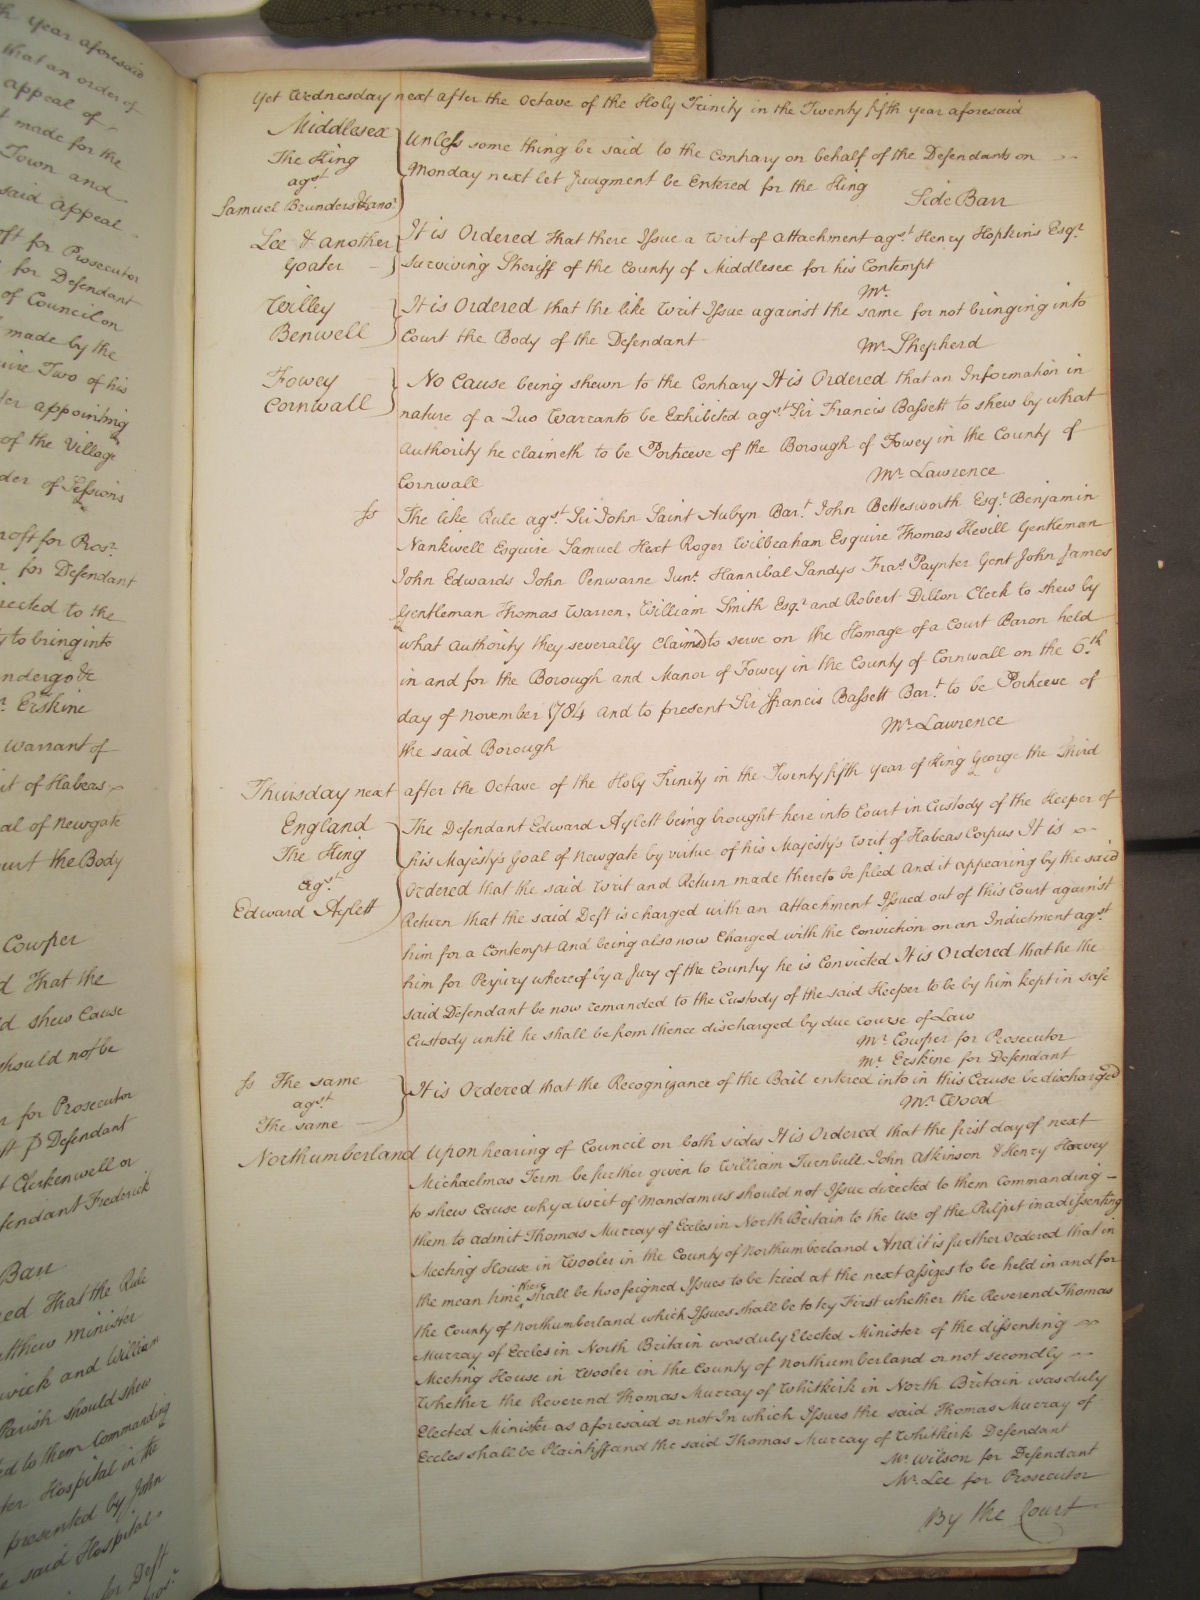 h year aforesaid
that an order of
appeal of
t made for the
Town and
said Appeal
oft for Prosecutor
for Defendant
of Council on
made by the
uire Two of his
der appointing
of the Village
der of Sessions
roft for Pros.r
r for Defendant
rected to the
y to bring into
ndergo &c
r. Erskine
warrant of
it of Habeas
al of Newgate
ourt the Body
Cowper
d That the
ld shew Cause
should not be
r for Prosecutor
ft p Defendant
t Clerkenwell or
fendant Frederick
Barr
red That the Rule
atthew Minister
wick and William
Parish should shew
ed to them Commanding
ter Hospital in the
presented by John
e said Hospital
for Deft
Yet Wednesday next after the Octave of the Holy Trinity in the Twenty fifth year aforesaid
Middlesex
The King
agst
Samuel Brunders & ano.r
Unless some thing be said to the Contrary on behalf of the Defendants on
Monday next let Judgment be Entered for the King
Side Barr
Lee & another
Goater
It is Ordered That there Issue a Writ of Attachment ag.st Henry Hopkins Esq.r
surviving Sheriff of the County of Middlesex for his Contempt
Mr.
Willey
Benwell
It is Ordered that the like Writ Issue against the same for not bringing into
Court the Body of the Defendant
Mr. Shepherd
Fowey
Cornwall
No Cause being shewn to the Contrary It is Ordered that an Information in
nature of a Quo Warranto be Exhibited ag.st Sir Francis Bassett to shew by what
Authority he claimeth to be Portreeve of the Borough of Fowey in the County of
Cornwall
Mr. Lawrence
Is The like Rule ag.st Sir John Saint Aubyn Bar.t John Bettesworth Esq.r Benjamin
Nankivell Esquire Samuel Hext Roger Wilbraham Esquire Thomas Kevill Gentleman
John Edwards John Penwarne Jun.r Hannibal Sandys Fra.s Paynter Gent John James
Gentleman Thomas Warren, William Smith Esq.r and Robert Dillon Clerk to shew by
what Authority they severally Claimed to serve on the Homage of a Court Baron held
in and for the Borough and Manor of Fowey in the County of Cornwall on the 6.th
day of November 1784 And to present Sir ffrancis Bassett Bar.t to be Portreeve of
the said Borough
Mr. Lawrence
Thursday next after the Octave of the Holy Trinity in the Twenty fifth year of King George the Third
England
The King
agst.
Edward Aylett
The Defendant Edward Aylett being brought here into Court in Custody of the Keeper of
his Majesty's Goal of Newgate by virtue of his Majesty's Writ of Habeas Corpus It is
Ordered that the said Writ and Return made thereto be filed And it appearing by the said
Return that the said Deft is charged with an attachment Issued out of this Court against
him for a Contempt And being also now Charged with the Conviction on an Indictment ag.st
him for Perjury whereof by a Jury of the Country he is Convicted It is Ordered that he the
said Defendant be now remanded to the Custody of the said Keeper to be by him kept in safe
Custody until he shall be from thence discharged by due Course of Law
Mr. Cowper for Prosecutor
Mr. Erskine for Defendant
Is The same
agst
The same
It is Ordered that the Recognizance of the Bail entered into in this Cause be discharged
Mr. Wood
Northumberland Upon hearing of Council on both sides It is Ordered that the first day of next
Michaelmas Term be further given to William Turnbull John Atkinson & Henry Harvey
to shew Cause why a Writ of Mandamus should not Issue directed to them Commanding
them to admit Thomas Murray of Eccles in North Britain to the Use of the Pulpit in a dissenting
Meeting House in Wooler in the County of Northumberland And it is further Ordered that in
the mean time there shall be two feigned Issues to be tried at the next assizes to be held in and for
the County of Northumberland which Issues shall be to try First whether the Reverend Thomas
Murray of Eccles in North Britain was duly Elected Minister of the dissenting
Meeting House in Wooler in the County of Northumberland or not secondly
Whether the Reverend Thomas Murray of Whitkirk in North Britain was duly
Elected Minister as aforesaid or not In which Issues the said Thomas Murray of
Eccles shall be Plaintiff and the said Thomas Murray of Whitkirk Defendant
Mr. Wilson for Defendant
Mr. Lee for Prosecutor
By the Court